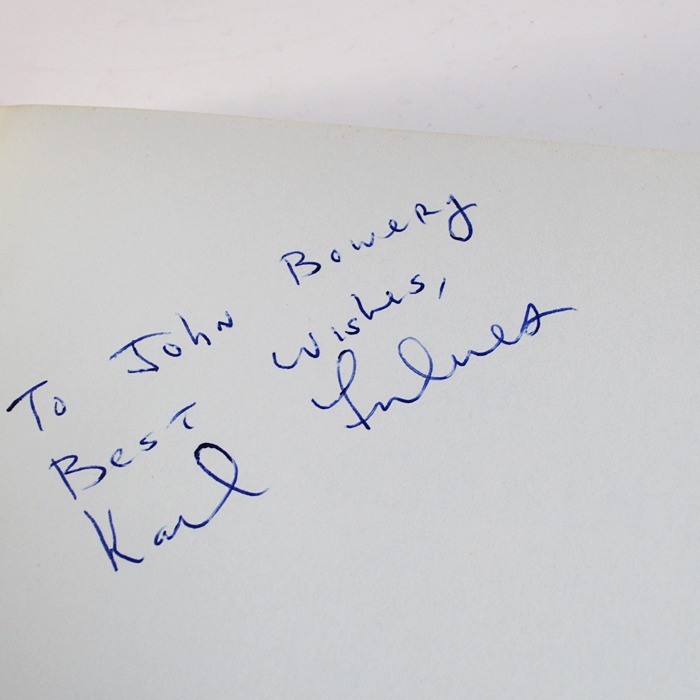 To John Bowery
Best Wishes,
Karl